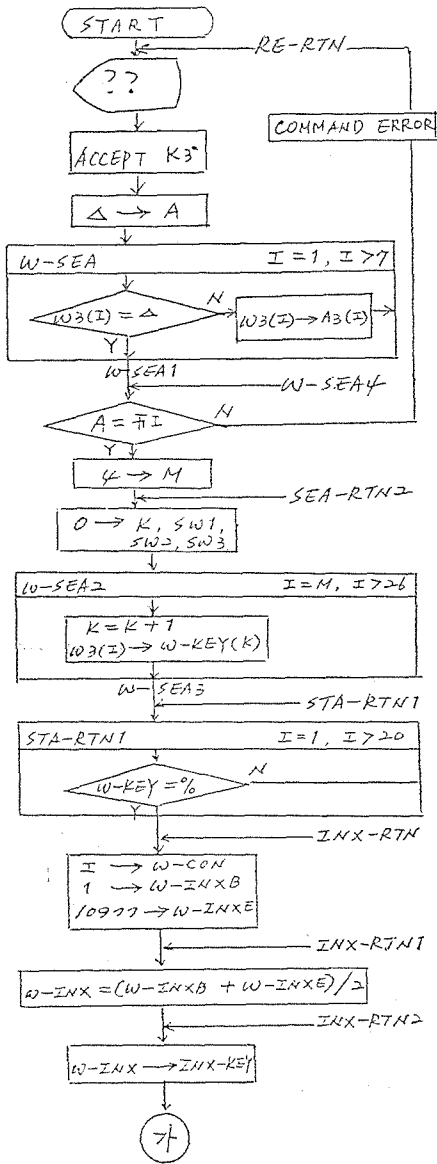 START
RE-RTN
??
COMMAND ERROR
ACCEPT K3
△ → A
W-SEA I=1, I>7
W3(I)=△ N W3(I)→A3(I)
Y
W-SEA1
W-SEA4
A=ㅠI N
Y
4 → M
SEA-RTN2
0 → K, SW1,
SW2, SW3
W-SEA2 I=M, I>26
K=K+1
W3(I)→W-KEY(K)
W-SEA3
STA-RTN1
STA-RTN1 I=1, I>20
W-KEY=% N
Y
INX-RTN
I → W-CON
1 → W-INXB
10977 → W-INXE
INX-RTN1
W-INX=(W-INXB + W-INXE)/2
INX-RTN2
W-INX → INX-KEY
가